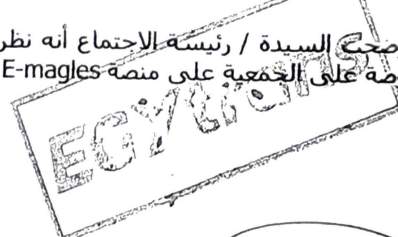 السيدة / رئيسة الاجتماع أنه نظر
على الجمعية على منصة E-magles
EGYtrans